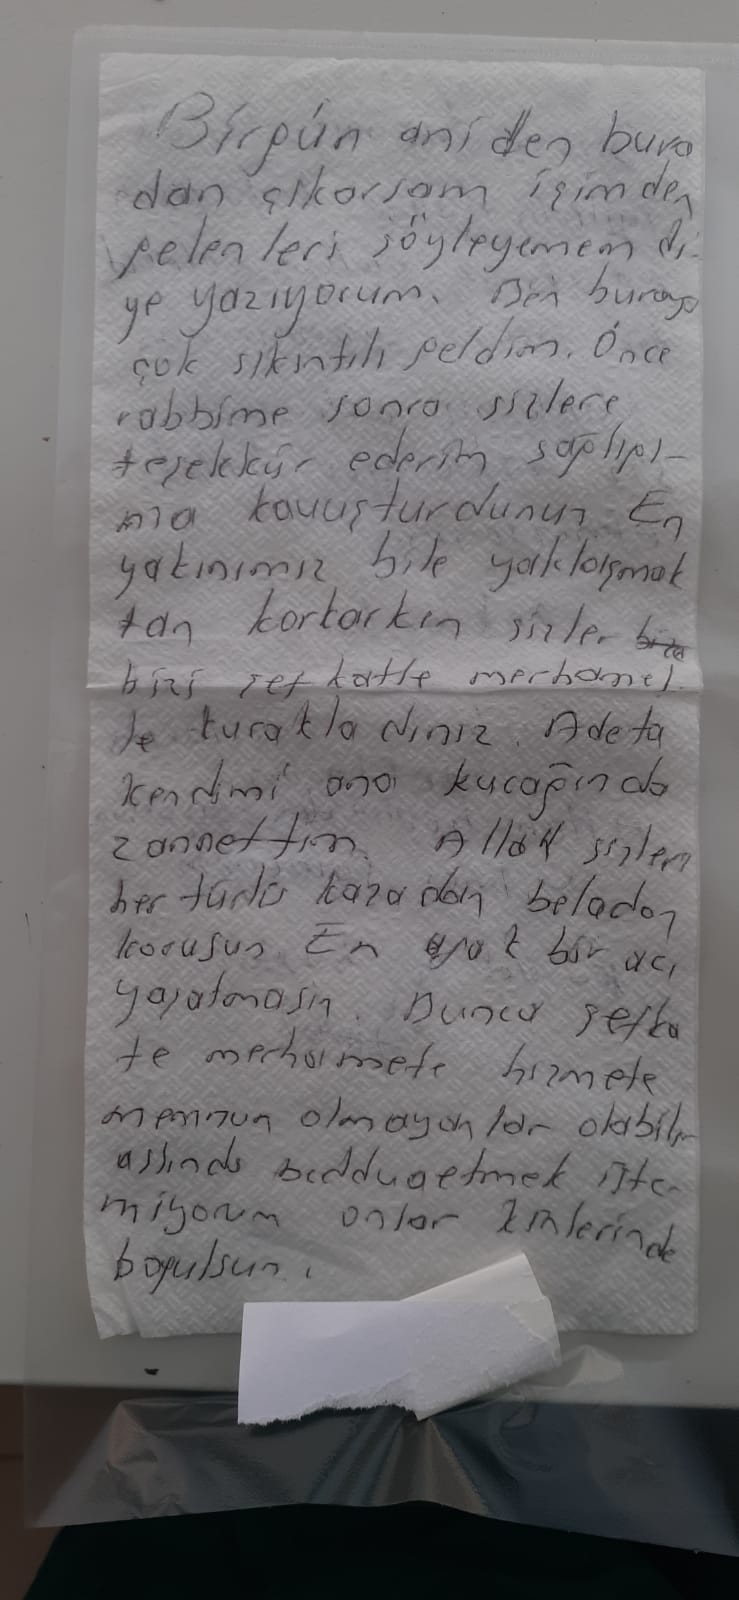 Birgün aniden bura
dan çıkarsam içimden
gelenleri söyleyemem di-
ye yazıyorum. Ben buraya
çok sıkıntılı geldim. Önce
rabbime sonra sizlere
teşekkür ederim sağlığı-
ma kavuşturdunun En
yakınımız bile yaklaşmak
tan korkarken sizler
bizi şefkatle merhamet
le kucakladınız. Adeta
kendimi ana kucağında
zannettim. Allah sizleri
her türlü kazadan beladan
korusun En ufak bir acı
yaşatmasın. Bunca şefka
te merhamete hizmete
memnun olmayanlar olabilir
aslında bedduaetmek iste-
miyorum onlar kinlerinde
boğulsun.